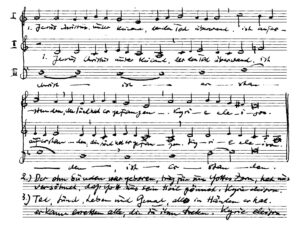 I
1. Jesus Christus, unser Heiland, der den Tod überwand, ist aufer-
II
1. Jesus Christus unser Heiland, der den Tod überwand, ist
III
Christ ist er-
standen, die Sünd hat er gefangen. Kyri- e e- le- i- son
auferstanden, die Sünd hat er gefangen. Kyri- e eleison
stan- den.
2.) Der ohn Sünden war geboren, trug für uns Gottes Zorn, hat uns
versöhnet, daß Gott uns sein Huld gönnet. Kyrie eleison.
3.) Tod, Sünd, Leben und Genad, alls in Händen er hat.
er kann erretten alle, die zu ihm treten. Kyrie eleison